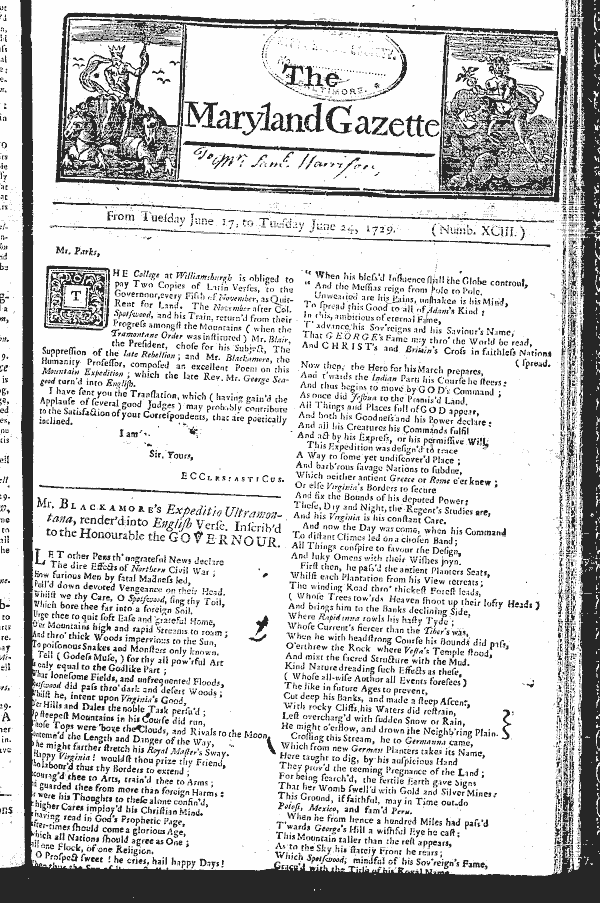 The
Maryland Gazette
BALTIMORE.
To Mr. Saml. Harrison,
From Tuesday June 17, to Tuesday June 24, 1729. (Numb. XCIII.)
Mr. Parks,
THE College at Williamsburgh is obliged to
pay Two Copies of Latin Verses, to the
Governour, every Fifth of November, as Quit-
Rent for Land. The November after Col.
Spotswood, and his Train, return'd from their
Progress amongst the Mountains (when the
Tramontane Order was instituted) Mr. Blair,
the President, chose for his Subject, The
Suppression of the late Rebellion; and Mr. Blackamore, the
Humanity Professor, composed an excellent Poem on this
Mountain Expedition; which the late Rev. Mr. George Sea-
good turn'd into English.
I have sent you the Translation, which (having gain'd the
Applause of several good Judges) may probably contribute
to the Satisfaction of your Correspondents, that are poetically
inclined.
I am
Sir, Yours,
ECCLESIASTICUS.
Mr. BLACKAMORE's Expeditio Ultramon-
tana, render'd into English Verse. Inscrib'd
to the Honourable the GOVERNOUR.
LET other Pens th' ungrateful News declare
The dire Effects of Northern Civil War;
How furious Men by fatal Madness led,
Pull'd down devoted Vengeance on their Head.
Whilst we thy Care, O Spotswood, sing thy Toil,
Which bore thee far into a foreign Soil.
Urge thee to quit soft Ease and grateful Home,
O'er Mountains high and rapid Streams to roam;
And thro' thick Woods impervious to the Sun,
To poisonous Snakes and Monsters only known.
Tell (Godess Muse,) for thy all pow'rful Art
Is only equal to the Godlike Part;
What lonesome Fields, and unfrequented Floods,
Spotswood did pass thro' dark and desert Woods;
Whilst he, intent upon Virginia's Good,
O'er Hills and Dales the noble Task persu'd;
Up steepest Mountains in his Course did run,
Whose Tops were 'bove the Clouds, and Rivals to the Moon,
Contemn'd the Length and Danger of the Way,
So he might farther stretch his Royal Master's Sway.
Happy Virginia! wouldst thou prize thy Friend,
labour'd thus thy Borders to extend;
Encourag'd thee to Arts, train'd thee to Arms;
guarded thee from more than foreign Harms:
were his Thoughts to these alone confin'd,
higher Cares imploy'd his Christian Mind.
having read in God's Prophetic Page,
after-times should come a glorious Age,
which all Nations should agree as One;
all one Flock, of one Religion.
O Prospect sweet! he cries, hail happy Days!
“ When his bless'd Influence shall the Globe controul,
“ And the Messias reign from Pole to Pole.
Unwearied are his Pains, unshaken is his Mind,
To spread this Good to all of Adam's Kind:
In this, ambitious of eternal Fame,
T' advance his Sov'reigns and his Saviour's Name,
That GEORGE's Fame may thro' the World be read,
And CHRIST's and Britain's Cross in faithless Nations
(spread.
Now then, the Hero for his March prepares,
And t'wards the Indian Parts his Course he steers:
And thus begins to move by GOD's Command;
As once did Joshua to the Promis'd Land,
All Things and Places full of GOD appear,
And both his Goodness and his Power declare:
And all his Creatures his Commands fulfil
And act by his Express, or his permissive Will.
This Expedition was design'd to trace
A Way to some yet undiscover'd Place;
And barb'rous savage Nations to subdue,
Which neither antient Greece or Rome e'er knew;
Or else Virginia's Borders to secure
And fix the Bounds of his deputed Power;
These, Day and Night, the Regent's Studies are,
And his Virginia is his constant Care.
And now the Day was come, when his Command
To distant Climes led on a chosen Band;
All Things conspire to favour the Design,
And luky Omens with their Wishes joyn.
First then, he pass'd the ancient Planters Seats,
Whilst each Plantation from his View retreats;
The winding Road thro' thickest Forest leads,
(Whose Trees tow'rds Heaven shoot up their lofty Heads)
And brings him to the Banks declining Side,
Where Rapidanna rowls his hasty Tyde;
Whose Current's fiercer than the Tiber's was,
When he with headstrong Course his Bounds did pass,
O'erthrew the Rock where Vesta's Temple stood,
And mixt the sacred Structure with the Mud.
Kind Nature dreading such Effects as these,
(Whose all-wise Author all Events foresees)
The like in future Ages to prevent,
Cut deep his Banks, and made a steep Ascent,
With rocky Cliffs, his Waters did restrain,
Lest overcharg'd with sudden Snow or Rain,
He might o'erflow, and drown the Neighb'ring Plain.
Crossing this Stream, he to Germanna came,
Which from new German Planters takes its Name,
Here taught to dig, by his auspicious Hand
They prov'd the teeming Pregnance of the Land;
For being search'd, the fertile Earth gave Signs
That her Womb swell'd with Gold and Silver Mines:
This Ground, if faithful, may in Time out-do
Potosi, Mexico, and fam'd Peru.
When he from hence a hundred Miles had pass'd
T'wards George's Hill a wishful Eye he cast;
This Mountain taller than the rest appears,
As to the Sky his stately Front he rears;
Which Spotswood, mindful of his Sov'reign's Fame,
Grac'd with the Title of his Royal Name.